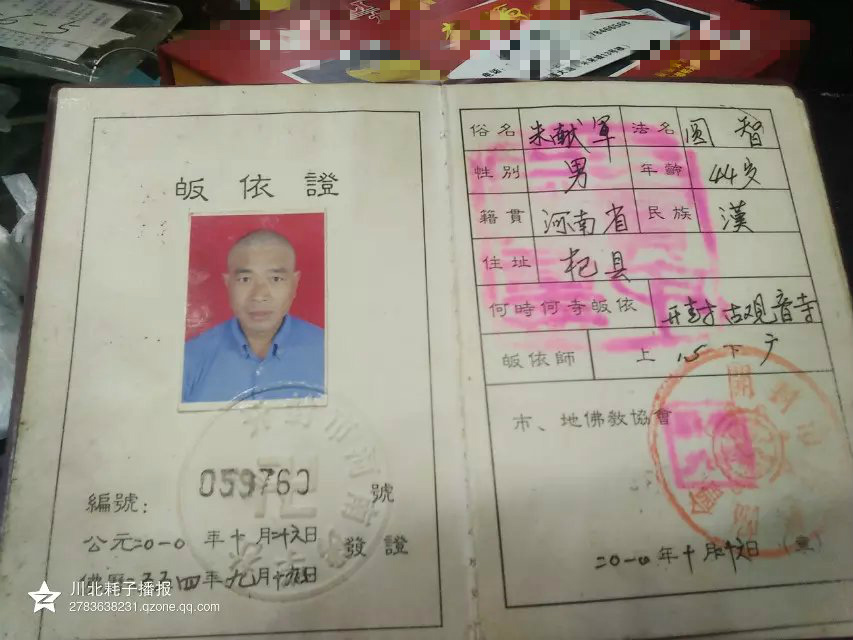 皈依證
059760
編號： 號
公元二〇一〇年十月廿六日 發證
佛曆二五五四年九月十九日
俗名 朱献軍 法名 圆智
性別 男 年齡 44岁
籍貫 河南省 民族 漢
住址 杞县
何時何寺皈依 开封古观音寺
皈依師 上 下
市、地佛教協會
二〇一〇年十月廿六日（章）
川北耗子播报
2783638231.qzone.qq.com